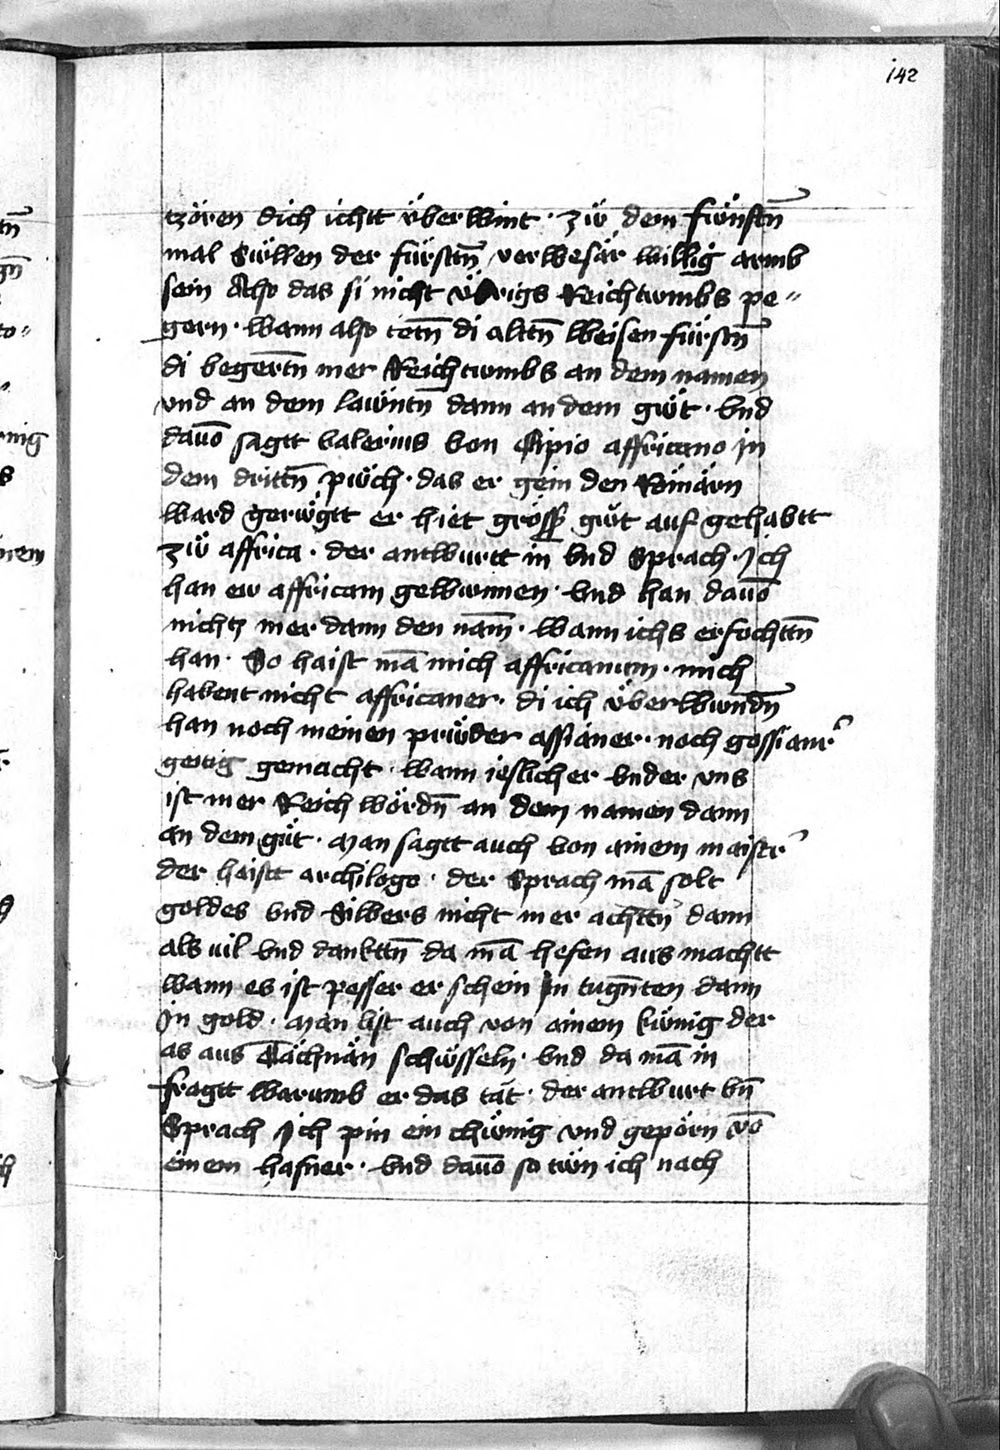 142
tzören dich ichtt vberwint · zw dem fwnftn̄
mal Süllen der fürstn̄ verwesär willig armb
sein Also das si nicht vbrigs Reichtumbs pe"
gern · wann also tetn̄ di altn̄ weisen fürstn̄
di begertn̄ mer Reichtumbs an dem namen
vnd an dem lawntn̄ dann an dem gwt · vnd
dauō sagtt valerius von Scipio affricano in
dem drittn̄ pwch · das er gein den Römärn
ward gerwgtt er hiet gröss gwt auf gehabtt
zw affrica · der antwurtt in vnd Sprach · Ich
han ew affricam gewunnen · vnd han dauō
nichtz mer dann den nam̄ · wann ichs erfochttn̄
han · So haist mā mich affricanum · mich
habent nicht affricaner · di ich vberwundn̄
han noch meinen prüder assianer · noch gossianr
geitig gemacht · wann ieslicher vnder vns
ist mer Reich wördn̄ an dem namen dann
an dem güt · Man sagtt auch von ainem maistr
der haistt archiloge · der Sprach mā solt
goldes vnd Silbers nicht mer achttn̄ dann
als vil vnd danktn̄ da mā hefen aus machtt
wann es ist pesser erschein In tugn̄ten dann
In gold · Man list auch von ainem künig der
as aus Kächnän schüsseln · vnd da mā in
fragtt warumb er das tät · der antwurt vn̄
Sprach Ich pin ein chünig vnd geporn vō
einem hafner · vnd dauō so twn ich nach